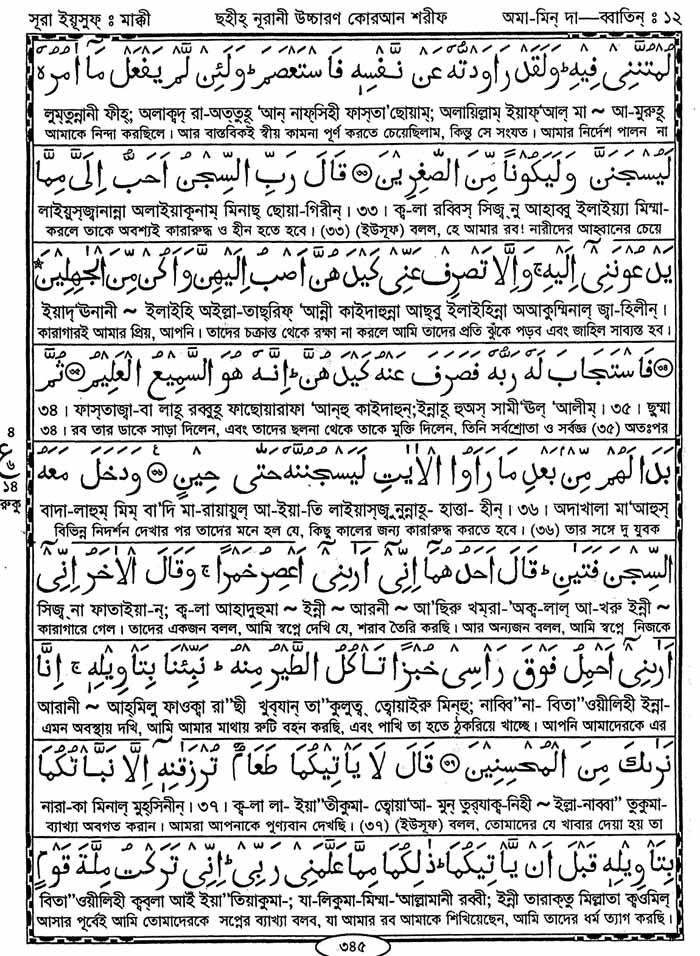 সূরা ইয়ূসুফ্ ঃ মাক্কী ছহীহ্ নূরানী উচ্চারণ কোরআন শরীফ অমা-মিন্ দা—ব্বাতিন্ ঃ ১২
لُمْتُنَّنِي فِيهِ وَلَقَدْ رَاوَدْتُهُ عَنْ نَفْسِهِ فَاسْتَعْصَمَ وَلَئِنْ لَمْ يَفْعَلْ مَا آمُرُهُ
লুম্তুন্নানী ফীহ্; অলাক্বদ্ রা-অত্তুহূ 'আন্ নাফ্সিহী ফাস্তা'ছোয়াম্; অলায়িল্লাম্ ইয়াফ্'আল্ মা ~ আ-মুরুহূ
আমাকে নিন্দা করছিলে। আর বাস্তবিকই স্বীয় কামনা পূর্ণ করতে চেয়েছিলাম, কিন্তু সে সংযত। আমার নির্দেশ পালন না
لَيُسْجَنَنَّ وَلَيَكُونًا مِنَ الصَّغِرِينَ ۝٣٢ قَالَ رَبِّ السِّجْنُ أَحَبُّ إِلَيَّ مِمَّا
লাইয়ুস্জ্বানান্না অলাইয়াকূনাম্ মিনাছ্ ছোয়া-গিরীন্। ৩৩। ক্ব-লা রব্বিস্ সিজ্ নু আহাব্বু ইলাইয়্যা মিম্মা-
করলে তাকে অবশ্যই কারারুদ্ধ ও হীন হতে হবে। (৩৩) (ইউসূফ) বলল, হে আমার রব! নারীদের আহ্বানের চেয়ে
يَدْعُونَنِي إِلَيْهِ وَإِلَّا تَصْرِفْ عَنِّي كَيْدَهُنَّ أَصْبُ إِلَيْهِنَّ وَأَكُنْ مِنَ الْجٰهِلِينَ
ইয়াদ্'ঊনানী ~ ইলাইহি অইল্লা-তাছ্রিফ্ 'আন্নী কাইদাহুন্না আছ্বু ইলাইহিন্না অআকুম্মিনাল্ জ্বা-হিলীন্।
কারাগারই আমার প্রিয়, আপনি। তাদের চক্রান্ত থেকে রক্ষা না করলে আমি তাদের প্রতি ঝুঁকে পড়ব এবং জাহিল সাব্যস্ত হব।
فَاسْتَجَابَ لَهُ رَبُّهُ فَصَرَفَ عَنْهُ كَيْدَهُنَّ إِنَّهُ هُوَ السَّمِيعُ الْعَلِيمُ ۝٣٤ ثُمَّ
৩৪। ফাস্তাজ্বা-বা লাহূ রব্বুহূ ফাছোয়ারাফা 'আন্হু কাইদাহুন্;ইন্নাহূ হুঅস্ সামী'উল্ 'আলীম্। ৩৫। ছুম্মা
৩৪। রব তার ডাকে সাড়া দিলেন, এবং তাদের ছলনা থেকে তাকে মুক্তি দিলেন, তিনি সর্বশ্রোতা ও সর্বজ্ঞ (৩৫) অতঃপর
৪
ع
৬
১৪
রুকু
بَدَا لَهُمْ مِنْ بَعْدِ مَا رَأَوُا الْاٰيٰتِ لَيَسْجُنُنَّهُ حَتّٰى حِينٍ ۝٣٥ وَدَخَلَ مَعَهُ
বাদা-লাহুম্ মিম্ বা'দি মা-রায়ায়ুল্ আ-ইয়া-তি লাইয়াস্জু নুন্নাহূ- হাত্তা- হীন্। ৩৬। অদাখালা মা'আহুস্
বিভিন্ন নিদর্শন দেখার পর তাদের মনে হল যে, কিছু কালের জন্য কারারুদ্ধ করতে হবে। (৩৬) তার সঙ্গে দু যুবক
السِّجْنَ فَتَيٰنِ قَالَ أَحَدُهُمَا إِنِّي أَرٰىنِي أَعْصِرُ خَمْرًا وَقَالَ الْاٰخَرُ إِنِّي
সিজ্ না ফাতাইয়া-ন্; ক্ব-লা আহাদুহুমা ~ ইন্নী ~ আরনী ~ আ'ছিরু খম্রা-'অক্ব-লাল্ আ-খরু ইন্নী ~
কারাগারে গেল। তাদের একজন বলল, আমি স্বপ্নে দেখি যে, শরাব তৈরি করছি। আর অন্যজন বলল, আমি স্বপ্নে নিজকে
أَرٰىنِي أَحْمِلُ فَوْقَ رَأْسِي خُبْزًا تَأْكُلُ الطَّيْرُ مِنْهُ نَبِّئْنَا بِتَأْوِيلِهِ إِنَّا
আরানী ~ আহ্মিলু ফাওক্বা রা"ছী খুব্যান্ তা"কুলুত্ব্ ত্বোয়াইরু মিন্হু; নাব্বি"না- বিতা"ওয়ীলিহী ইন্না-
এমন অবস্থায় দখি, আমি আমার মাথায় রুটি বহন করছি, এবং পাখি তা হতে ঠুকরিয়ে খাচ্ছে। আপনি আমাদেরকে এর
نَرٰىكَ مِنَ الْمُحْسِنِينَ ۝٣٦ قَالَ لَا يَأْتِيكُمَا طَعَامٌ تُرْزَقٰنِهِ إِلَّا نَبَّأْتُكُمَا
নারা-কা মিনাল্ মুহ্সিনীন্। ৩৭। ক্ব-লা লা- ইয়া"তীকুমা- ত্বোয়া'আ- মুন্ তুর্যাক্ব-নিহী ~ ইল্লা-নাব্বা" তুকুমা-
ব্যাখ্যা অবগত করান। আমরা আপনাকে পুণ্যবান দেখছি। (৩৭) (ইউসূফ) বলল, তোমাদের যে খাবার দেয়া হয় তা
بِتَأْوِيلِهِ قَبْلَ أَنْ يَأْتِيَكُمَا ذٰلِكُمَا مِمَّا عَلَّمَنِي رَبِّي إِنِّي تَرَكْتُ مِلَّةَ قَوْمٍ
বিতা"ওয়ীলিহী ক্বব্লা আই ইয়া"তিয়াকুমা-; যা-লিকুমা-মিম্মা-'আল্লামানী রব্বী; ইন্নী তারাক্তু মিল্লাতা ক্বওমিল্
আসার পূর্বেই আমি তোমাদেরকে সপ্নের ব্যাখ্যা বলব, যা আমার রব আমাকে শিখিয়েছেন, আমি তাদের ধর্ম ত্যাগ করছি।
৩৪৫